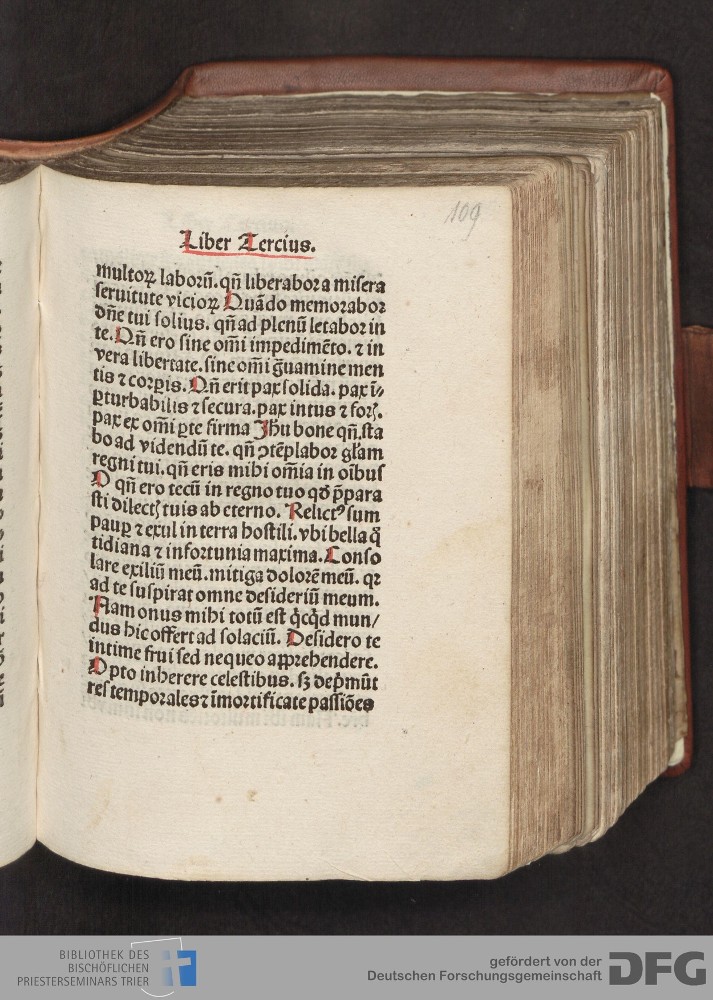 109
Liber Tercius.
multoꝝ laboꝝ̄. qn̄ liberabor a misera
seruitute vicioꝝ Quādo memorabor
dn̄e tui solius. qn̄ ad plenū letabor in
te. Qn̄ ero sine om̄i impedimēto. ⁊ in
vera libertate. sine om̄i ḡuamine men
tis ⁊ corꝑis. Qn̄ erit pax solida. pax ī⸗
ꝑturbabilis ⁊ secura. pax intus ⁊ forꝭ.
pax ex om̄i ꝑte firma Jh̄u bone qn̄. sta
bo ad videndū te. qn̄ ꝯtēplabor gl̄am
regni tui. qn̄ eris mihi om̄ia in oībus
O qn̄ ero tecū in regno tuo qd̄ p̄para
sti dilectꝭ tuis ab eterno. Relictꝰ sum
pauꝑ ⁊ exul in terra hostili. vbi bella q̄
tidiana ⁊ infortunia maxima. Conso
lare exiliū meū. mitiga dolorē meū. qꝛ
ad te suspirat omne desideriū meum.
Nam onus mihi totū est q̇cq̇d mun/
dus hic offert ad solaciū. Desidero te
intime frui sed nequeo apprehendere.
Opto inherere celestibus. sꝫ dep̓mūt
res temporales ⁊ īmortificate passiōes
BIBLIOTHEK DES
BISCHÖFLICHEN
PRIESTERSEMINARS TRIER
gefördert von der
Deutschen Forschungsgemeinschaft
DFG